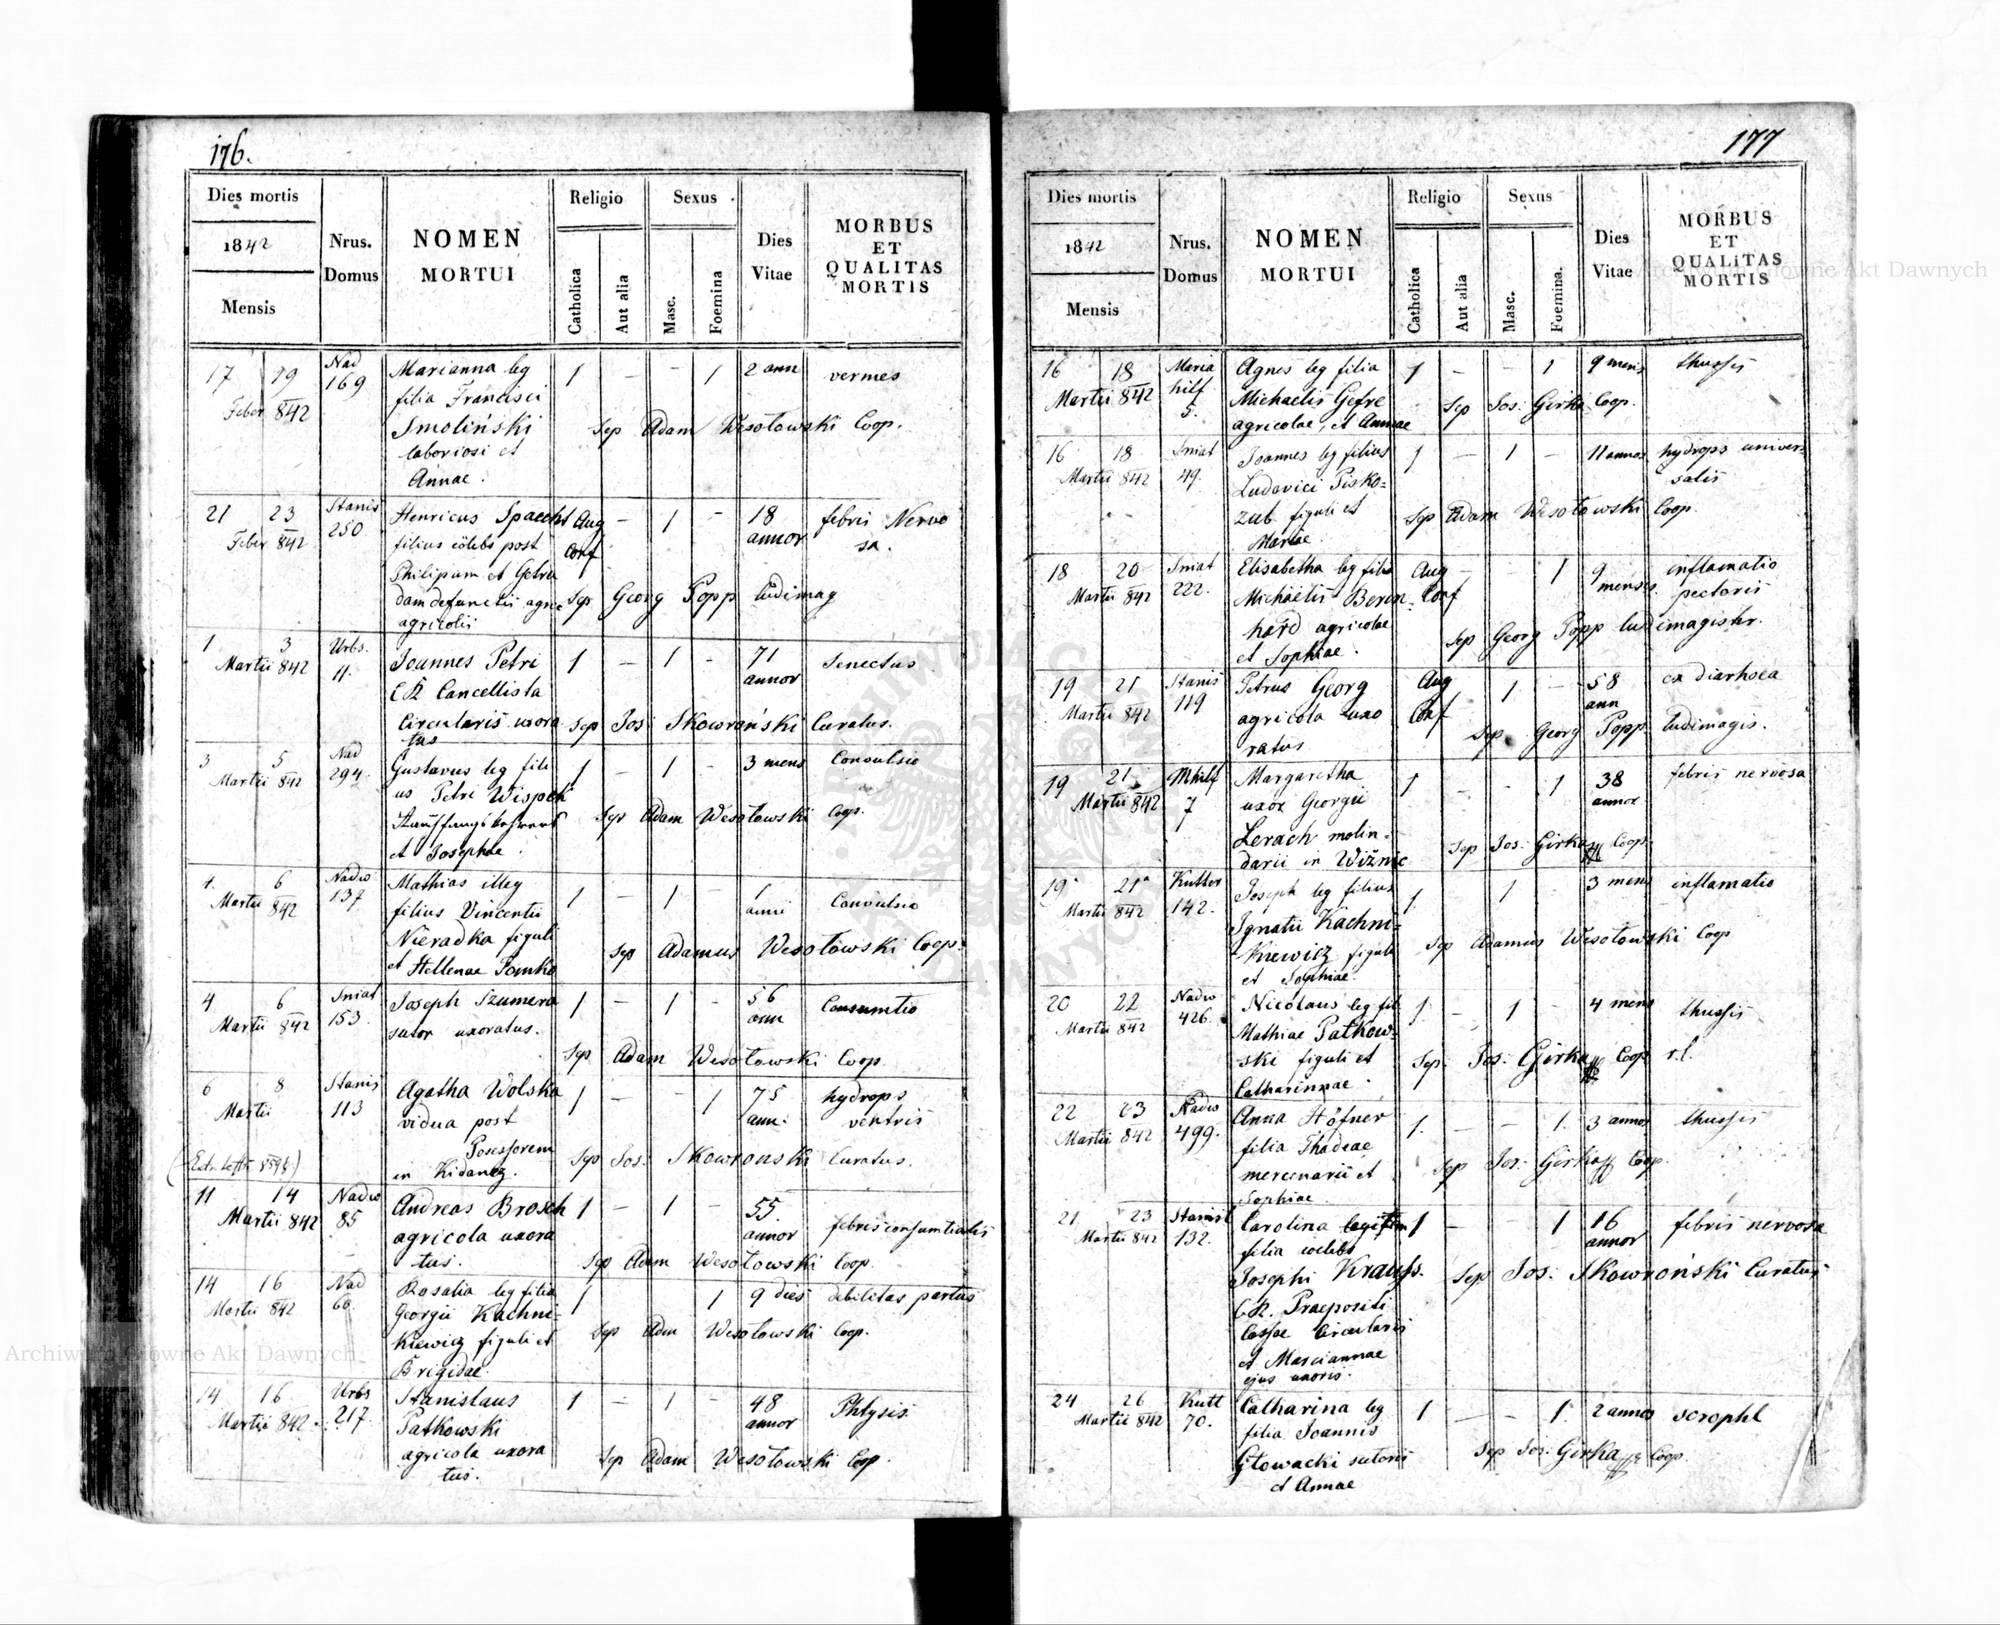 176.
Dies mortis
1842
Mensis
Nrus.
Domus
NOMEN
MORTUI
Religio
Catholica
Aut alia
Sexus
Masc.
Foemina
Dies
Vitae
MORBUS
ET
QUALITAS
MORTIS
17 19 Nad Marianna leg 1 – – 1 2 ann vermes
Feber 842 169 filia Francisci
Smoliński Sep Adam Wesołowski Coop.
laboriosi et
Annae.
21 23 Stanis Henricus Spaecht Aug – 1 – 18 febris Nervo
Feber 842 250 filius cölebs post Conf annor sa.
Philipum et Getru
dam defunctis agric Sep Georg Popp ludimag
agricolis
1 3 Urbs. Joannes Petri 1 – 1 – 71 Senectus
Martii 842 11. CR Cancellista annor
Circularis uxora Sep Jos: Skowroński Curatus.
tus
3 5 Nad Gustavus leg fili 1 – 1 – 3 mens Convulsio
Martii 842 294. us Petri Wispek
Sep Adam Wesołowski Coop.
et Josephae.
6 Nadw Mathias illeg 1 – 1 – 1 Convulsio
Martii 842 137 filius Vincentii anni
Nieradka figuli Sep Adamus Wesołowski Coop.
et Hellenae Tomko
4 6 Sniat Joseph Szumera 1 – 1 – 56 Consumtio
Martii 842 153. sutor uxoratus. ann
Sep Adam Wesołowski Coop.
6 8 Stanis Agatha Wolska 1 – – 1 75 hydrops
Martii 113 vidua post ann: ventris
Posessorem
in Sep Jos: Skowronski Curatus.
11 14 Nadw Andreas Brosch 1 – 1 – 55 febris consumtialis
Martii 842 85 agricola uxora annor
tus. Sep Adam Wesołowski Coop.
14 16 Nad Rosalia leg filia 1 1 9 dies debilitas partus
Martii 842 60. Georgii Kachni-
kiewicz figuli et Sep Adm Wesołowski Coop.
Brigidae.
14 16 Urbs Stanislaus 1 – 1 – 48 Phtysis
Martii 842 217. Patkowski annor
agricola uxora Sep Adam Wesołowski Coop.
tus.
177
Dies mortis
1842
Mensis
Nrus.
Domus
NOMEN
MORTUI
Religio
Catholica
Aut alia
Sexus
Masc.
Foemina.
Dies
Vitae
MORBUS
ET
QUALITAS
MORTIS
16 18 Maria Agnes leg filia 1 – – 1 9 mens thussis
Martii 842 hilf Michaelis Gefre Sep Jos: Girka Coop.
5. agricolae, et Annae
16 18 Sniat Joannes leg filius 1 – 1 – 11 annos hydrops univer-
Martii 842 49. Ludovici Pisko- salis
zub figuli et Sep Adam Wesołowski Coop.
Mariae.
18 20 Sniat Elisabetha leg filia Aug – 1 9 inflamatio
Martii 842 222. Michaelis Beren- Conf menses. pectoris
hard agricolae Sep Georg Popp ludimagistr.
et Sophiae.
19 21 Stanis Petrus Georg Aug 1 – 58 ex diarhoea
Martii 842 119 agricola uxo Conf ann
ratus Sep Georg Popp ludimagis.
19 21 Mhilf Margaretha 1 – – 1 38 febris nervosa
Martii 842 7 uxor Georgii annor
Lerach molin-
darii in Wiźnic Sep Jos: Girka Coop.
19 21 Kutter Joseph leg filius 1. 1 3 mens inflamatio
Martii 842 142. Ignatii Kachni-
kiewicz figuli Sep Adamus Wesołowski Coop
et Sophiae.
20 22 Nadw Nicolaus leg fil 1. – 1 – 4 mens thussis
Martii 842 426. Mathiae Patkow-
ski figuli et Sep. Jos: Girka Coop r.l.
Catharinnae.
22 23 Nadw Anna Höfner 1. – – 1. 3 annos thussis
Martii 842 499. filia Thadeae
mercenarii et Sep Jos: Girka Coop.
Sophiae
21 23 Stanisl Carolina legitim 1 – – 1 16 febris nervosa
Martii 842 132. filia coelebs annor
Josephi Krauss. Sep Jos: Skowroński Curatus
CR. Praepositi
Cassae Circularis
et Mariannae
ejus uxoris.
24 26 Kutt Catharina leg 1 – – 1. 2 annos scrophl
Martii 842 70. filia Joannis
Głowacki sutoris Sep Jos: Girka Coop.
et Annae
Archiwum Główne Akt Dawnych
Archiwum Główne Akt Dawnych